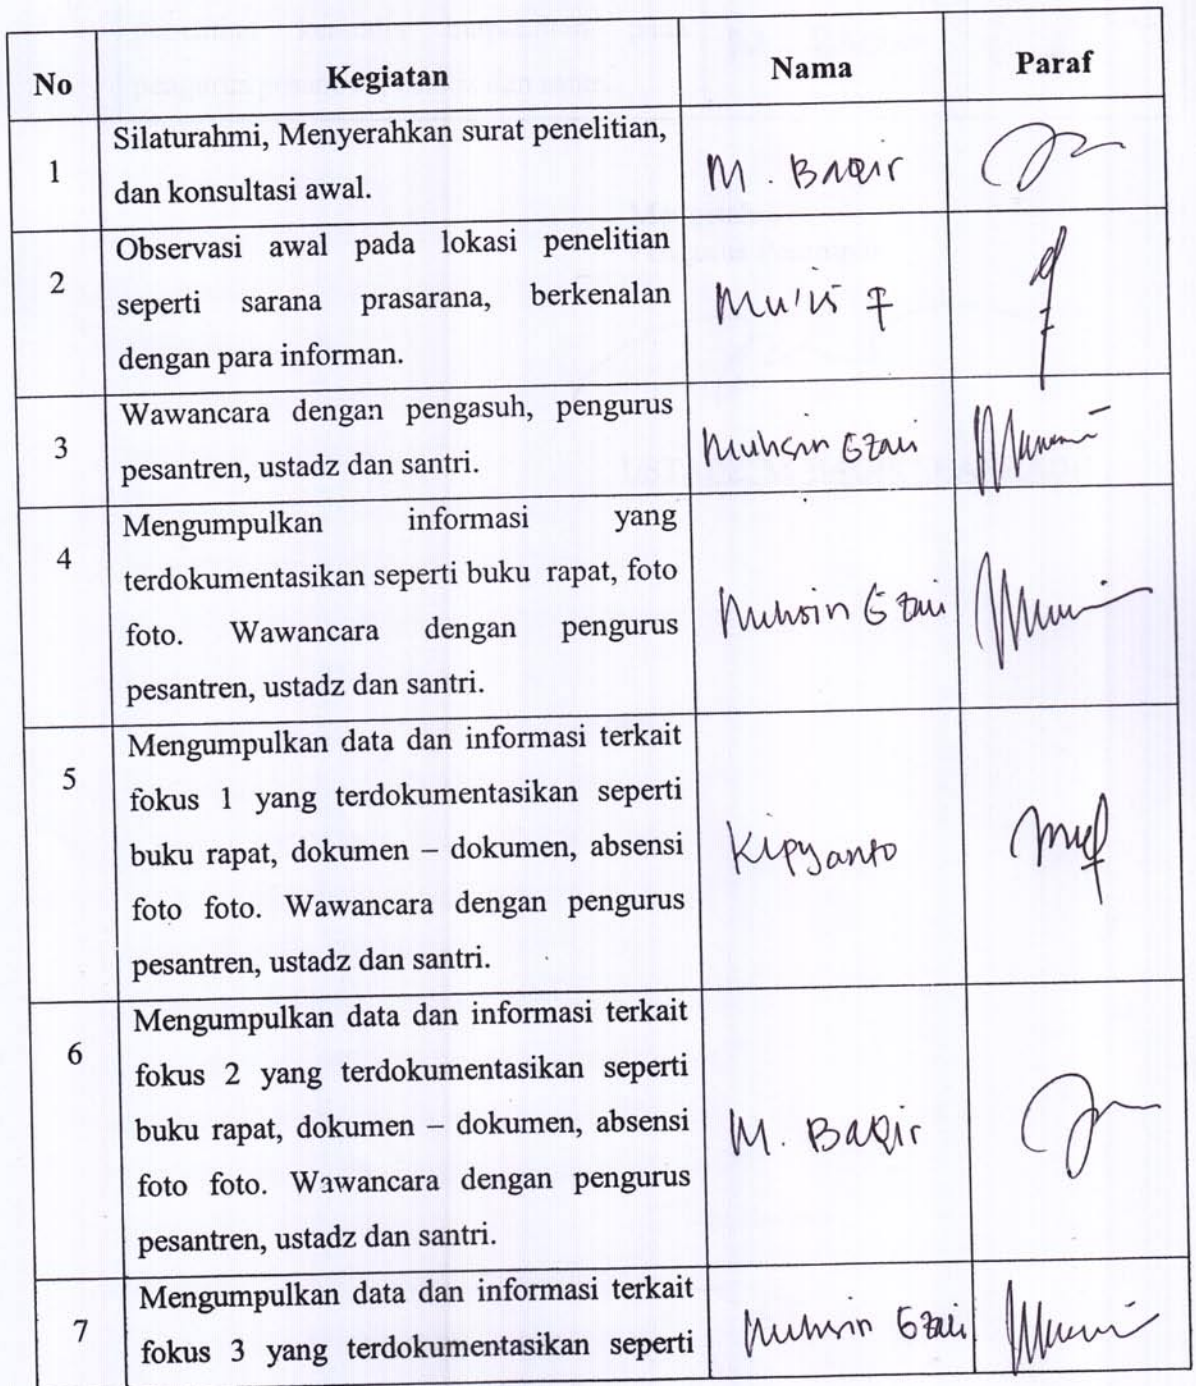 No Kegiatan Nama Paraf
1 Silaturahmi, Menyerahkan surat penelitian,
dan konsultasi awal.
M. Baqir
2 Observasi awal pada lokasi penelitian
seperti sarana prasarana, berkenalan
dengan para informan.
Mu'is F
3 Wawancara dengan pengasuh, pengurus
pesantren, ustadz dan santri.
Muhsin Gzali
4 Mengumpulkan informasi yang
terdokumentasikan seperti buku rapat, foto
foto. Wawancara dengan pengurus
pesantren, ustadz dan santri.
Muhsin Gzali
5 Mengumpulkan data dan informasi terkait
fokus 1 yang terdokumentasikan seperti
buku rapat, dokumen – dokumen, absensi
foto foto. Wawancara dengan pengurus
pesantren, ustadz dan santri.
Kipyanto
6 Mengumpulkan data dan informasi terkait
fokus 2 yang terdokumentasikan seperti
buku rapat, dokumen – dokumen, absensi
foto foto. Wawancara dengan pengurus
pesantren, ustadz dan santri.
M. BaQir
7 Mengumpulkan data dan informasi terkait
fokus 3 yang terdokumentasikan seperti
Muhsin Gzali